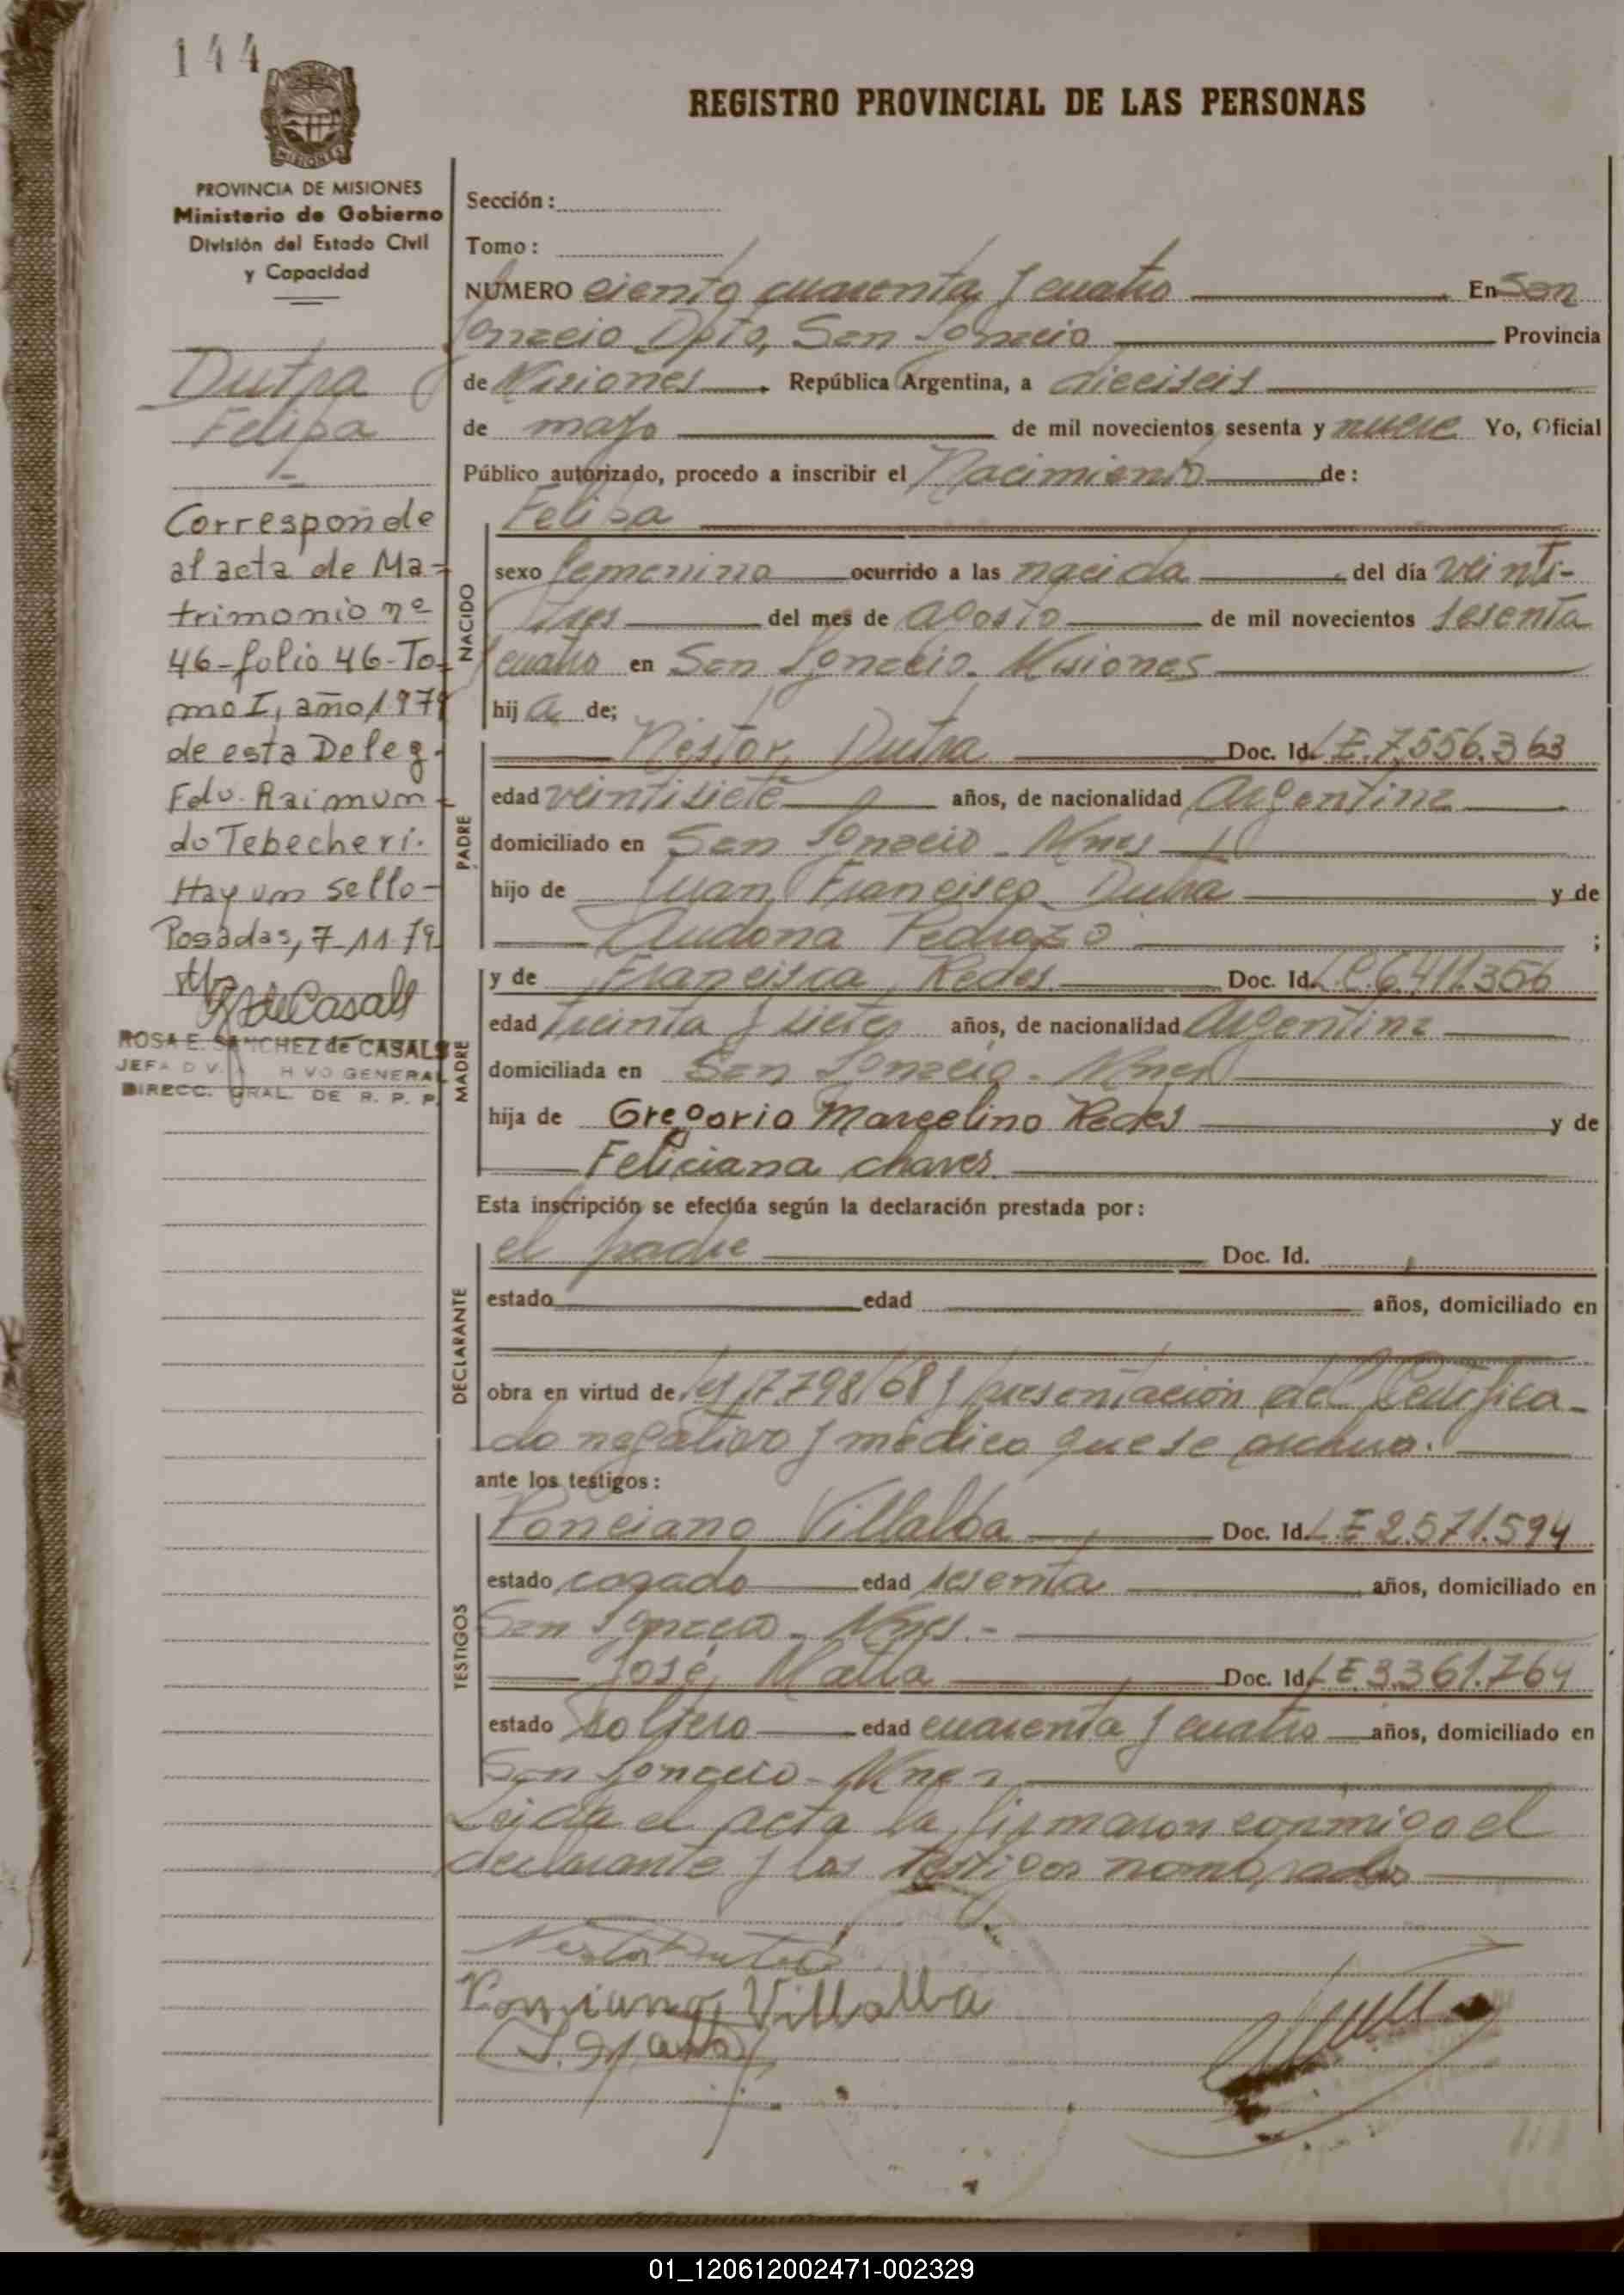 144
REGISTRO PROVINCIAL DE LAS PERSONAS
MISIONES
PROVINCIA DE MISIONES
Ministerio de Gobierno
División del Estado Civil
y Capacidad
Dutra
Felipa
Corresponde
al acta de Ma-
trimonio nº
46-folio 46-To-
mo I, año 1979
de esta Deleg.
Fdo. Raimun-
do Tebecheri.
Hay un sello-
Posadas, 7-11-79
ROSA E. SANCHEZ de CASALS
JEFA DIV. VO GENERAL
DIRECC. GRAL. DE R. P. P.
Sección:
Tomo:
NUMERO ciento cuarenta y cuatro En San
Ignacio Dpto, San Ignacio Provincia
de Misiones República Argentina, a dieciseis
de mayo de mil novecientos sesenta y nueve Yo, Oficial
Público autorizado, procedo a inscribir el Nacimiento de:
NACIDO
Felipa
sexo femenino ocurrido a las nacida del día veinti-
tres del mes de agosto de mil novecientos sesenta
y cuatro en San Ignacio. Misiones
hija de;
PADRE
Nestor, Dutra Doc. Id. L.E. 7.556.363
edad veintisiete años, de nacionalidad Argentina
domiciliado en San Ignacio - Mnes
hijo de Juan Francisco Dutra y de
Audona Pedrozo ;
MADRE
y de Francisca, Redes Doc. Id. L.C. 6.411.356
edad treinta y siete años, de nacionalidad Argentina
domiciliada en San Ignacio - Mnes
hija de Gregorio Marcelino Redes y de
Feliciana chaves.
Esta inscripción se efectúa según la declaración prestada por:
DECLARANTE
el padre Doc. Id.
estado edad años, domiciliado en
obra en virtud de ley 17798/68 y presentación del Certifica-
do negativo y médico que se archiva.
ante los testigos:
TESTIGOS
Ponciano Villalba Doc. Id. L.E 2.571.594
estado cazado edad sesenta años, domiciliado en
San Ignacio - Mnes.-
José, Matta Doc. Id. L E 3.361.764
estado soltero edad cuarenta y cuatro años, domiciliado en
San Ignacio - Mnes
Leida el acta la firmaron conmigo el
declarante y los testigos nombrados
Nestor Dutra
Ponciano Villalba
J. Matta
01_120612002471-002329